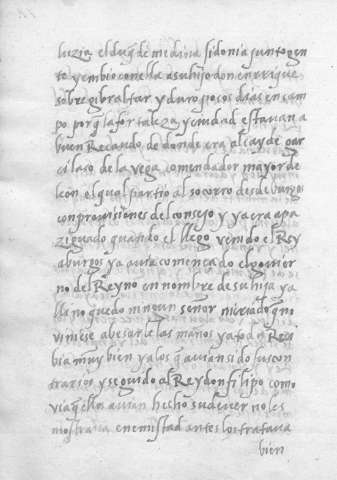 luzia el duq̃ de medina sidonia junto gen
te y embio con ella a su hijo don enrrique
sobre gibraltar y duro pocos dias en cam
po porq̃ la fortaleza y ciudad estavan a
buen Recaudo de donde era alcayde gar
cilaso de la vega comendador mayor de
leon el qual partio al socorro desde burgos
con provisiones del consejo y ya era apa
ziguado quando el llego venido el Rey
a burgos ya avia comencado el govier
no del Reyno en nombre de su hija ya
lla no quedo ningun señor ni criado q̃ no
viniese a besarle las manos y a todos Reci
bia muy bien y a los q̃ avian sido sus con
trarios y seguido al Rey don filipo como
via q̃ ellos avian hecho su dever no les
mostrava enemistad antes los tratava
bien